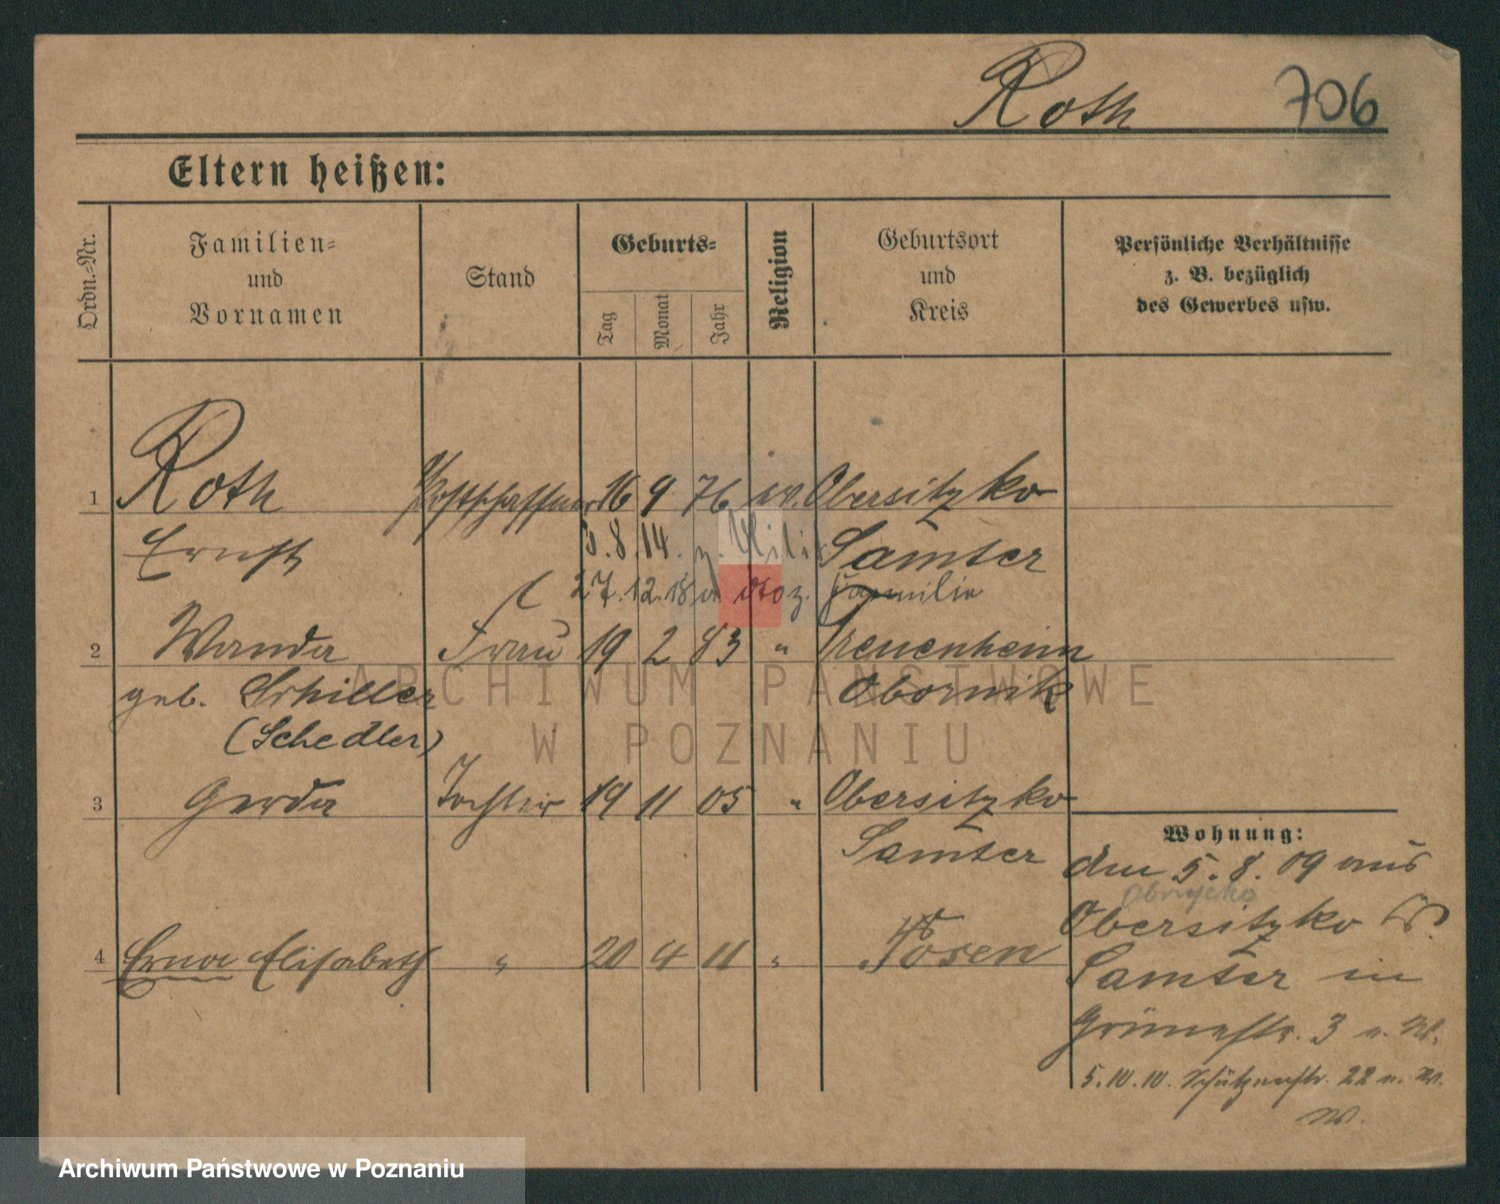 Roth 706
Eltern heißen:
Ordn.-Nr.
Familien-
und
Vornamen
Stand
Geburts-
Tag
Monat
Jahr
Religion
Geburtsort
und
Kreis
Persönliche Verhältnisse
z. B. bezüglich
des Gewerbes usw.
1 Roth Postschaffner 16 9 76 ev. Obersitzko
Ernst 5.8.14. z. Samter
27.12.18 z. Familie
2 Wanda Frau 19 2 83 " Treuenheim
geb. Schiller Obornik
(Schedler)
3 Gerda Tochter 19 11 05 " Obersitzko
Samter
4 Erna Elisabeth " 20 4 11 " Posen
Wohnung:
Am 5.8.09 aus
Obrzycko
Obersitzko Kr.
Samter in
Grünestr. 3 n. W.
5.10.10. Schützenstr. 22 n. W.
W.
ARCHIWUM PAŃSTWOWE
W POZNANIU
Archiwum Państwowe w Poznaniu